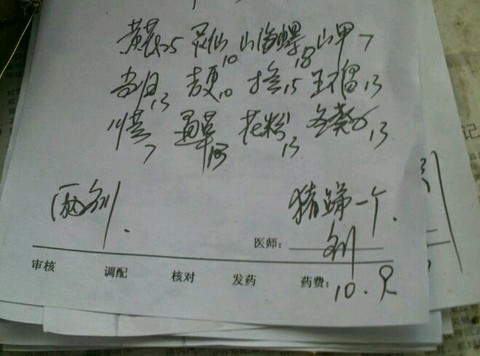 黄芪25 灵仙10 山海螺18 山甲7
当归13 桔更10 13 王不留13
川芎7 通草13 花粉13 冬葵子13
两剂. 猪蹄一个.
医师: 刘
审核 调配 核对 发药 药费: 10.